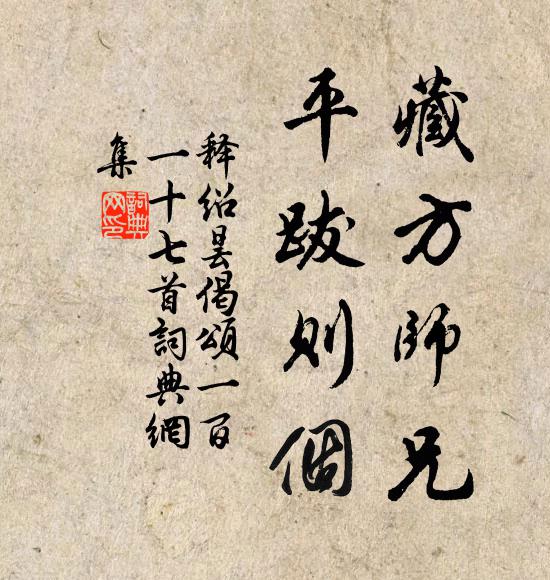 藏方師兄
平跋則個
释紹曇偈頌一百
一十七首詞典網
集
詞典網印